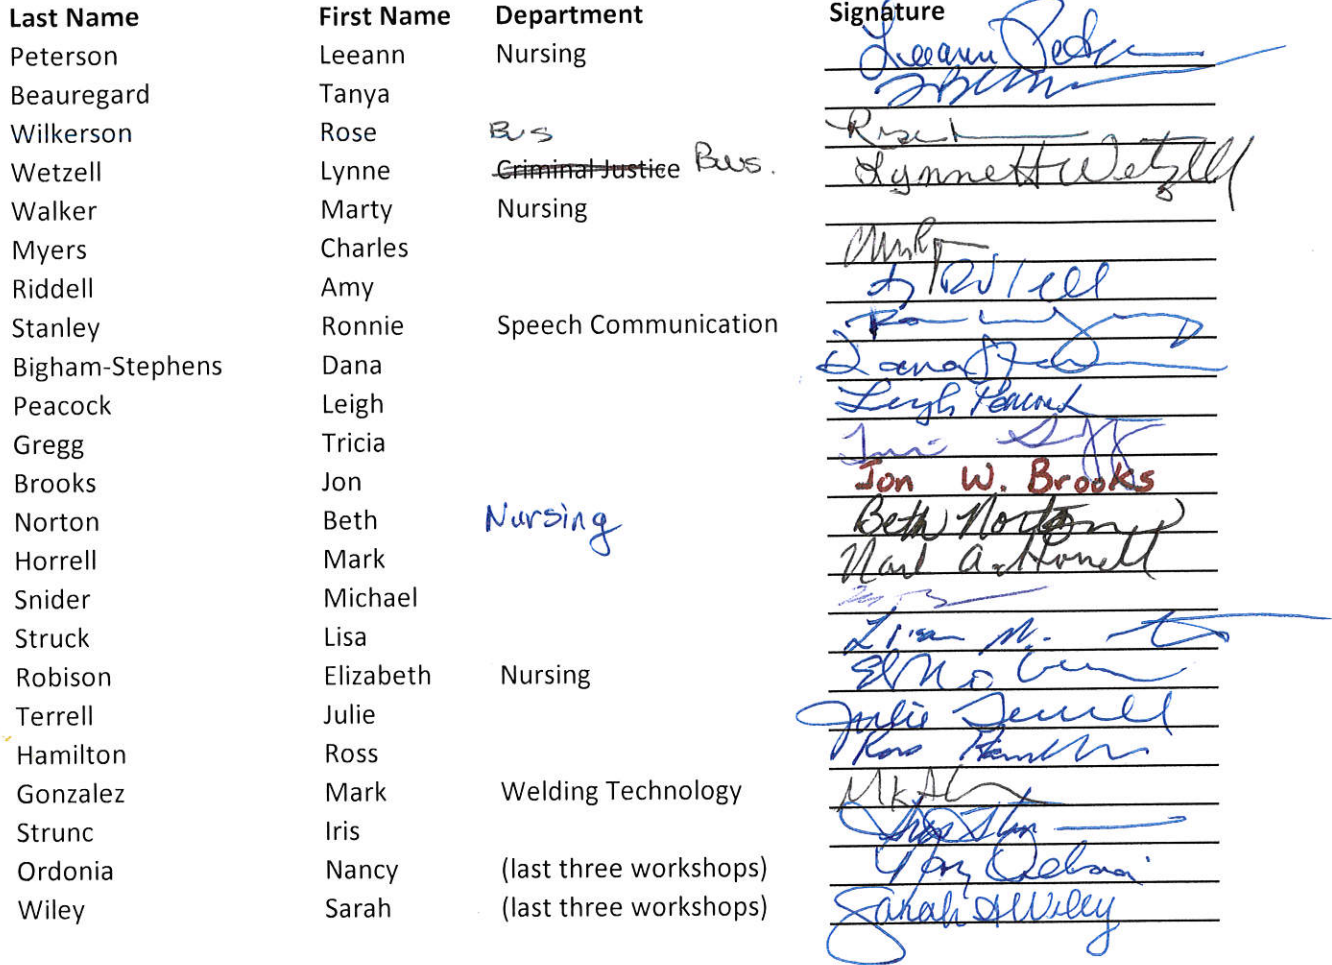 Last Name First Name Department Signature
Peterson Leeann Nursing Leeann
Beauregard Tanya
Wilkerson Rose Bus
Wetzell Lynne Criminal Justice Bus. Lynnett Wetzell
Walker Marty Nursing
Myers Charles
Riddell Amy
Stanley Ronnie Speech Communication
Bigham-Stephens Dana Dana
Peacock Leigh Leigh Peacock
Gregg Tricia
Brooks Jon Jon W. Brooks
Norton Beth Nursing Beth Norton
Horrell Mark Mark A. Horrell
Snider Michael
Struck Lisa Lisa M.
Robison Elizabeth Nursing
Terrell Julie Julie Terrell
Hamilton Ross Ross Hamilton
Gonzalez Mark Welding Technology
Strunc Iris
Ordonia Nancy (last three workshops)
Wiley Sarah (last three workshops) Sarah A Wiley